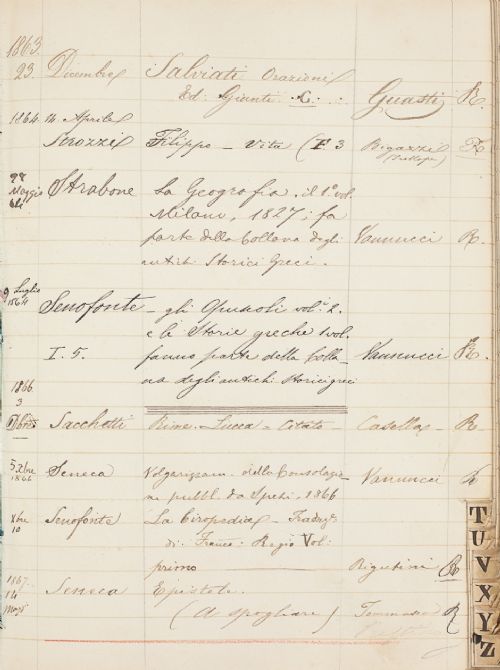 1863.
23. Dicembre Salviati Orazioni
Ed: Giunti Guasti R.
1864. 14. Aprile
Strozzi Filippo - Vita (F. 3 Bigazzi R
Maggio Strabone La Geografia. il 1° vol.
Milano, 1827; fa
parte della Collana degli Vannucci R.
antichi Storici Greci.
9 Luglio
1864 Senofonte - gli Opuscoli vol. 2.
e le Storie greche 1 vol.
I. 5. fanno parte della Colla- Vannucci R.
na degli antichi storici greci
1866
3
Sacchetti Rime. Lucca - Citato - Casella R
5. Xbre
1866 Seneca Volgarizzam. della Consolazio-
ne pubbl. da Spezi, 1866 Vannucci R
Xbre
10 Senofonte La Ciropedia - Traduz.
di Franc. Regio Vol:
primo Rigutini R
1867.
14
Seneca Epistole.
(da spogliare) Tommaseo R
T
U
V
X
Y
Z